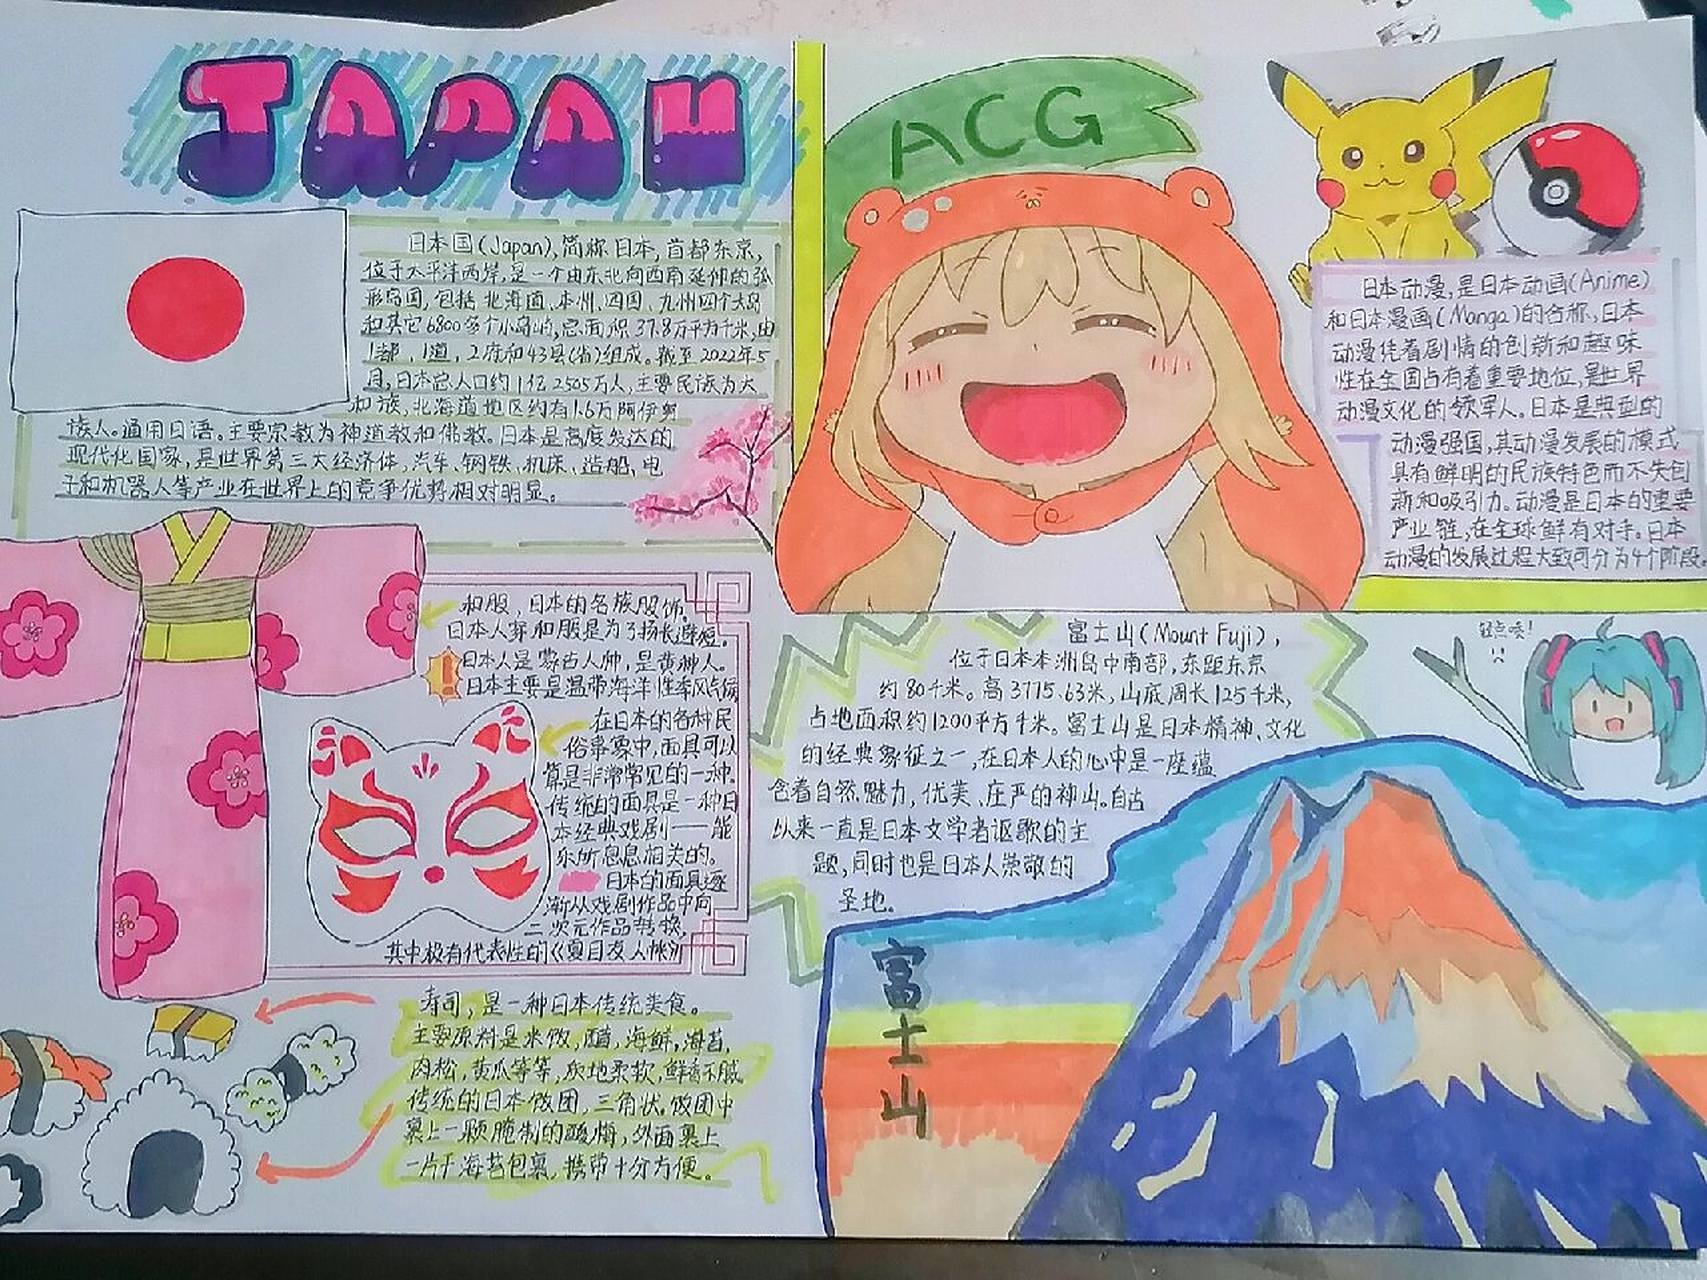 JAPAN
日本国(Japan),简称日本,首都东京,
位于太平洋西岸,是一个由东北向西南延伸的弧
形岛国,包括北海道、本州、四国、九州四个大岛
和其它6800多个小岛屿,总面积37.8万平方千米,由
1都,1道,2府和43县(省)组成。截至2022年5
月,日本总人口约1亿2505万人,主要民族为大
和族,北海道地区约有1.6万阿伊努
族人。通用日语。主要宗教为神道教和佛教。日本是高度发达的
现代化国家,是世界第三大经济体,汽车、钢铁、机床、造船、电
子和机器人等产业在世界上的竞争优势相对明显。
和服,日本的名族服饰。
日本人穿和服是为了扬长避短。
日本人是蒙古人种,是黄种人。
日本主要是温带海洋性季风气候
在日本的各种民
俗事象中,面具可以
算是非常常见的一种。
传统的面具是一种日
本经典戏剧——能
乐所息息相关的。
日本的面具逐
渐从戏剧作品中向
二次元作品转换,
其中极有代表性的《夏目友人帐》
寿司,是一种日本传统美食。
主要原料是米饭,醋,海鲜,海苔,
肉松,黄瓜等等,质地柔软,鲜香不腻。
传统的日本饭团,三角状。饭团中
裹上一颗腌制的酸梅,外面裹上
一片干海苔包裹,携带十分方便。
ACG
日本动漫,是日本动画(Anime)
和日本漫画(Manga)的合称,日本
动漫凭着剧情的创新和趣味
性在全国占有着重要地位,是世界
动漫文化的领军人。日本是典型的
动漫强国,其动漫发展的模式
具有鲜明的民族特色而不失创
新和吸引力。动漫是日本的重要
产业链,在全球鲜有对手。日本
动漫的发展过程大致可分为4个阶段。
富士山(Mount Fuji),
位于日本本洲岛中南部,东距东京
约80千米。高3775.63米,山底周长125千米,
占地面积约1200平方千米。富士山是日本精神、文化
的经典象征之一,在日本人的心中是一座蕴
含着自然魅力,优美、庄严的神山。自古
以来一直是日本文学者讴歌的主
题,同时也是日本人崇敬的
圣地。
轻点噢!
富士山